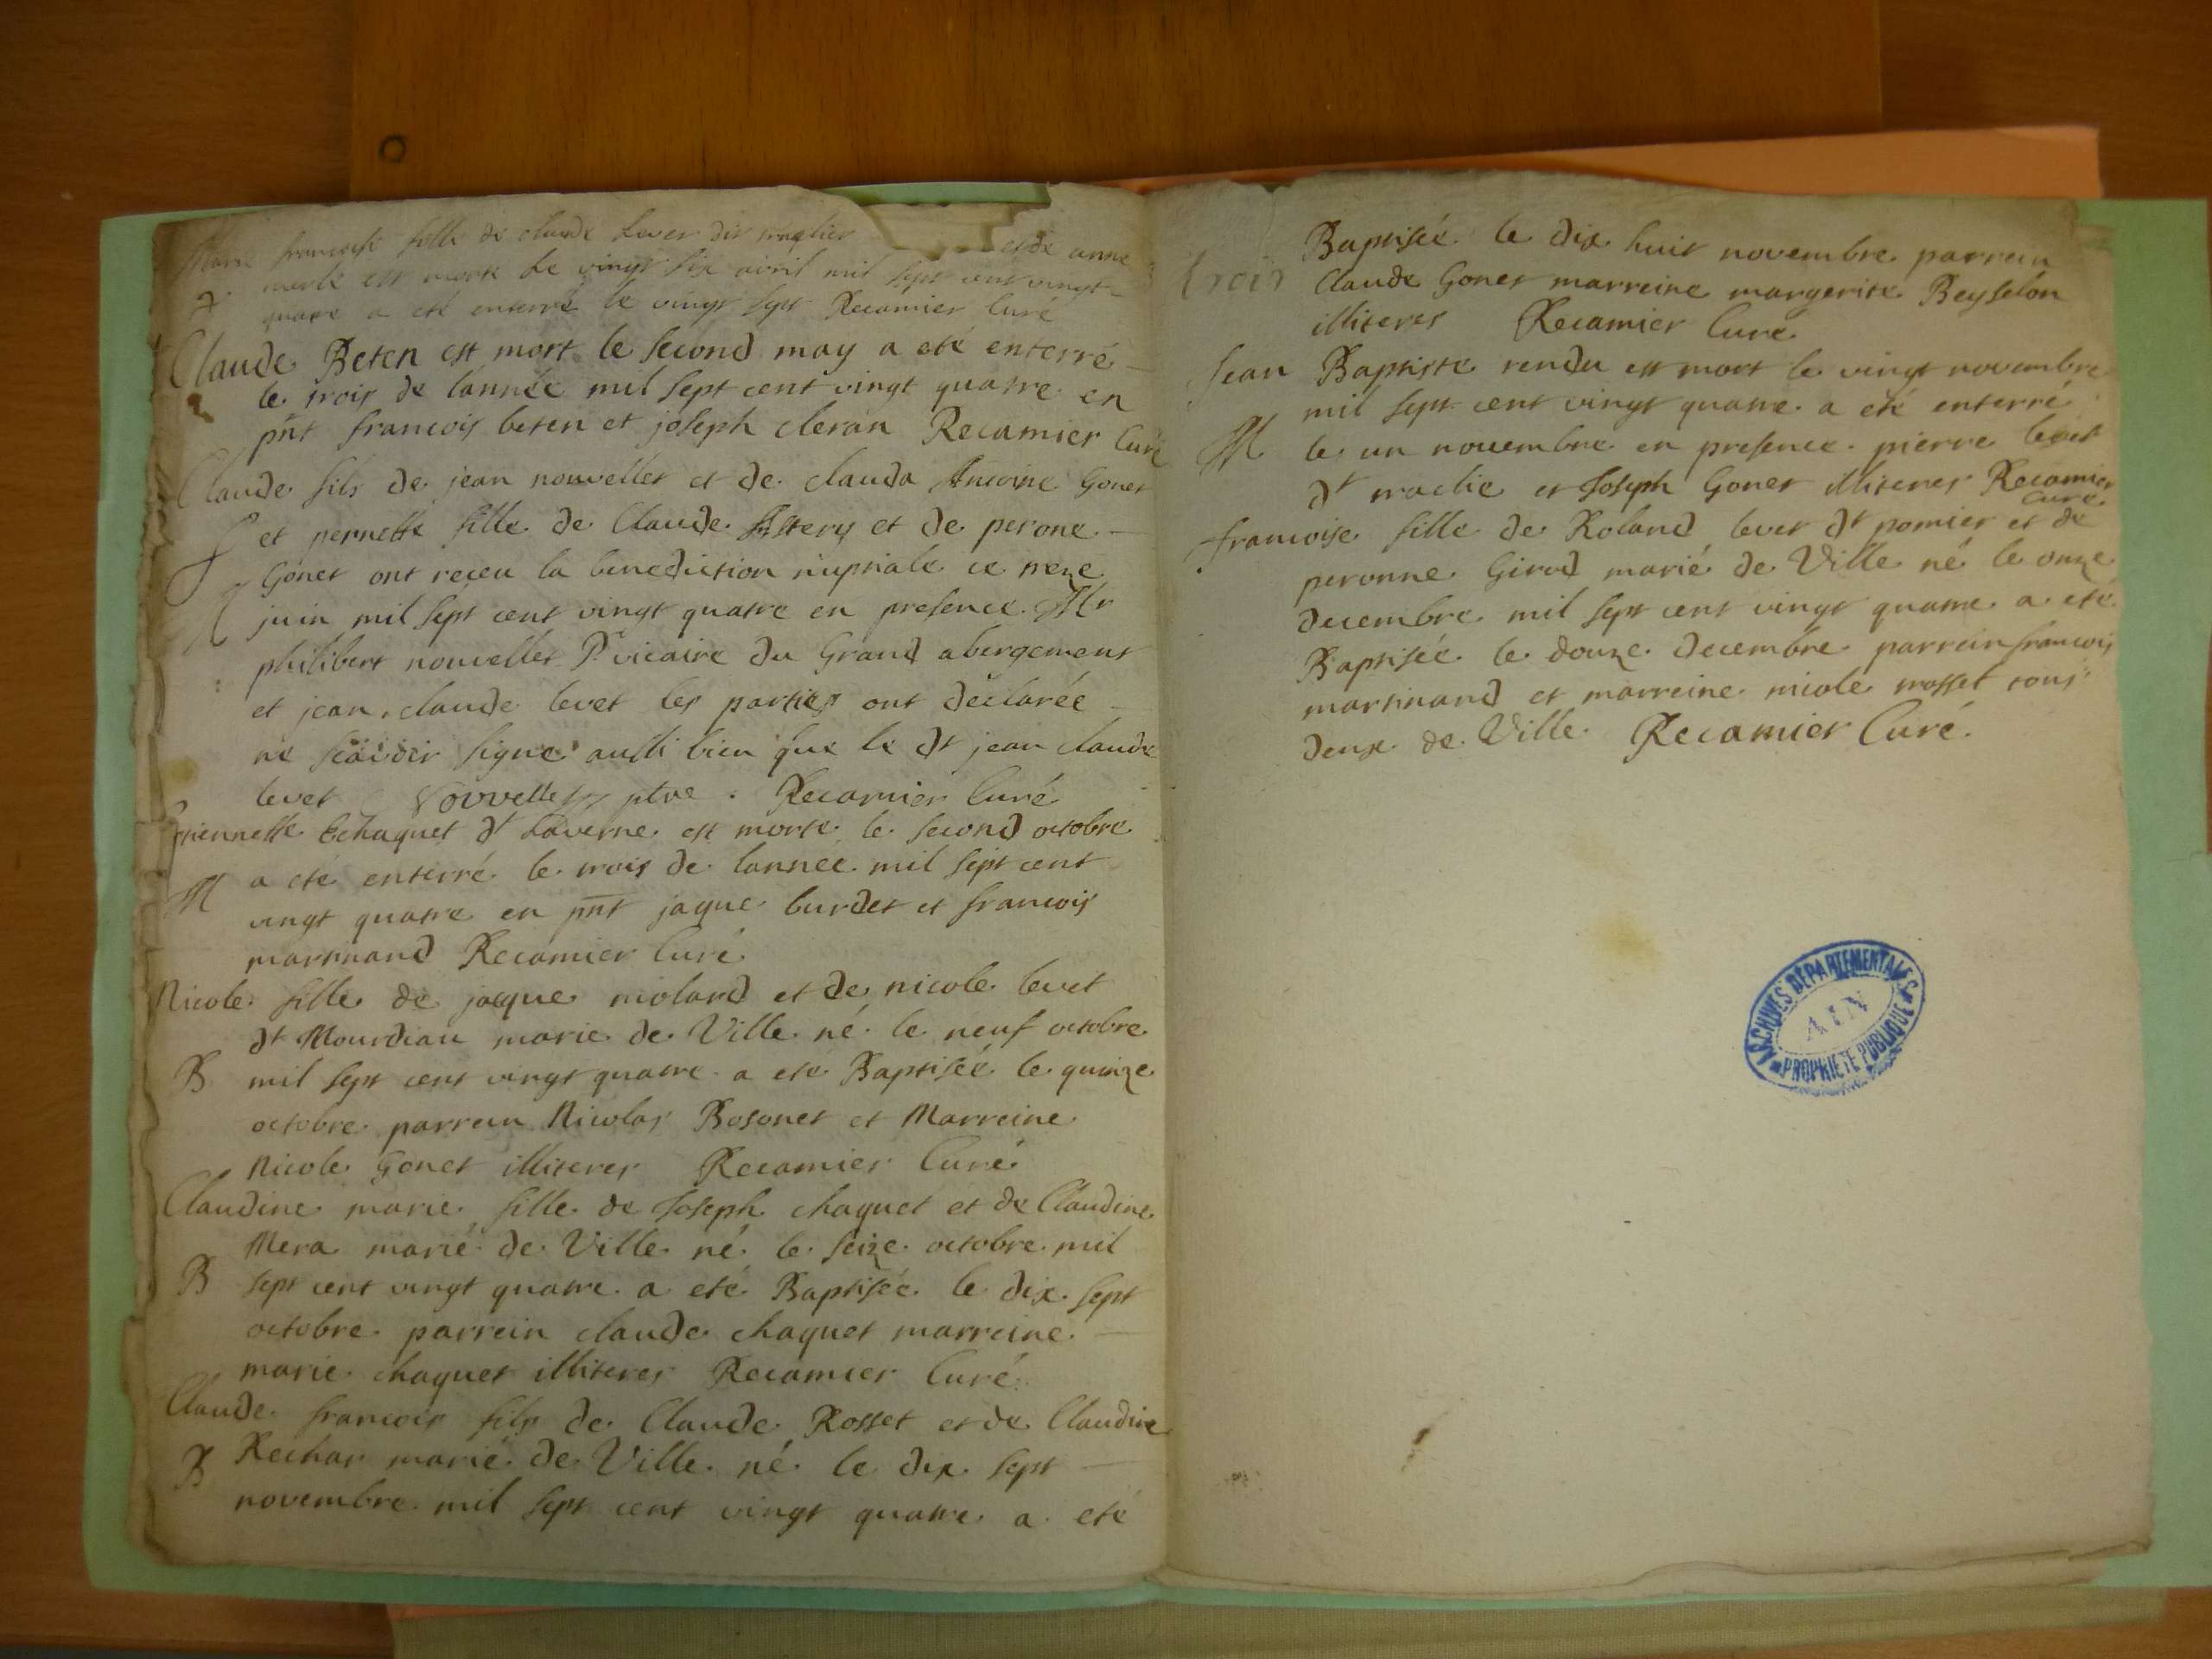 Marie francoise fille de claude Levet dit maclier et de anne
merle est morte Le vingt six avril mil sept cent vingt
quatre a eté enterré le vingt sept Recamier Curé
Claude Beten est mort le second may a eté enterré
le trois de lannée mil sept cent vingt quatre en
pñt francois beten et joseph cleran Recamier Curé
Claude fils de jean nouvellet et de clauda Antoine Gonet
et pernette fille de Claude et de perone
Gonet ont receu la benediction nuptiale ce treze
M juin mil sept cent vingt quatre en presence Mr
philibert nouvellet Pr vicaire du Grand abergement
et jean claude levet les parties ont déclarée
ne scavoir signe aussi bien que le dt jean claude
levet Nouvellet ptre. Recamier Curé
Etiennette Echaquet dt Laverne est morte le second octobre
M a eté enterré le trois de lannée mil sept cent
vingt quatre en pñt jaque burdet et francois
martinand Recamier Curé
Nicole fille de jacque molard et de nicole levet
dt Mourdiau marie de Ville né le neuf octobre
B mil sept cent vingt quatre a eté Baptisée le quinze
octobre parrein Nicolas Bosonet et Marreine
Nicole Gonet illiteres Recamier Curé
Claudine marie fille de Joseph chaquet et de Claudine
Mera marié de Ville né le seize octobre mil
B sept cent vingt quatre a eté Baptisée le dix sept
octobre parrein claude chaquet marreine
marie chaquet illiteres Recamier Curé
Claude francois fils de Claude Rosset et de Claudine
B Rechar marié de Ville né le dix sept
novembre mil sept cent vingt quatre a eté
Baptisée le dix huit novembre parrein
trois Claude Gonet marreine margerite Beyselon
illiteres Recamier Curé
Jean Baptiste rendu est mort le vingt novembre
mil sept cent vingt quatre a eté enterré
M le un novembre en presence pierre levet
dt maclie et Joseph Gonet illiteres Recamier
Curé
francoise fille de Roland levet dt pomier et de
peronne Girod marié de Ville né le onze
decembre mil sept cent vingt quatre a eté
Baptisée le douze decembre parrein francois
martinand et marreine nicole rosset tous
deux de Ville Recamier Curé
ARCHIVES DÉPARTEMENTALES
AIN
PROPRIÉTÉ PUBLIQUE